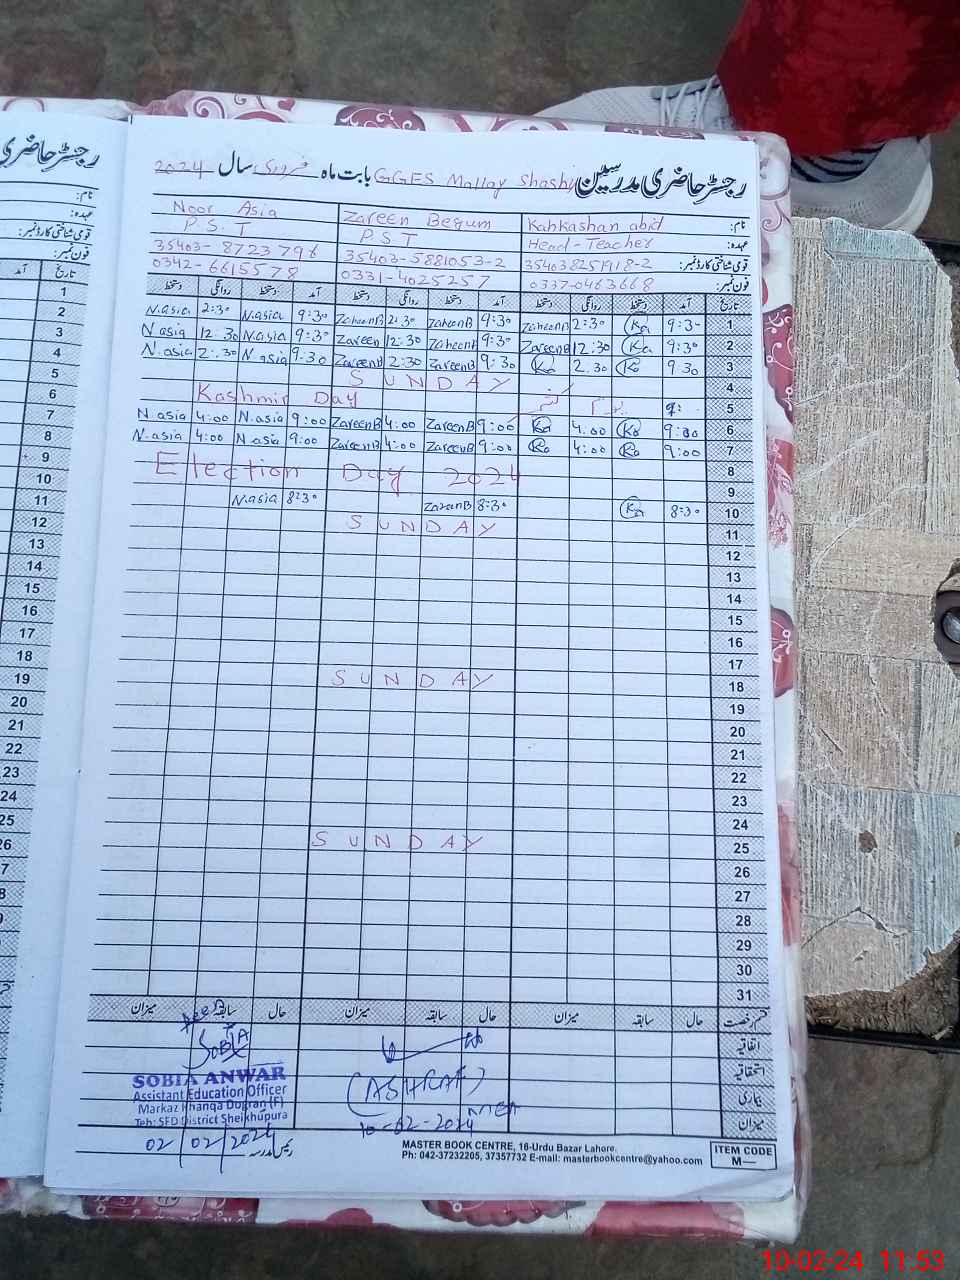 رجسٹر حاضری مدرسین GGES Mallay Shashy بابت ماہ فروری سال 2024
نام: Kahkashan abid Zareen Begum Noor Asia
عہدہ: Head-Teacher P.S.T P.S.T
قومی شناختی کارڈ نمبر: 35403-5881053-2
فون نمبر: 0337-0463668 0331-4025257 0342-6615578
تاریخ آمد دستخط روانگی دستخط آمد دستخط روانگی دستخط آمد دستخط روانگی دستخط
1 9:3- Ka 2:30 ZareenB 9:30 ZareenB 2:30 ZareenB 9:30 N.asia 2:30 N.asia
2 9:30 Ka 12:30 ZareenB 9:30 ZareenB 12:30 Zareen 9:30 N.asia 12.30 N.asia
3 9.30 Ka 2.30 Ka 9:30 ZareenB 2:30 ZareenB 9:30 N.asia 2:30 N.asia
4 SUNDAY
5 9: Kashmir Day
6 9:00 Ka 4.00 Ka 9:00 ZareenB 4:00 ZareenB 9:00 N.asia 4:00 N.asia
7 9:00 Ka 4:00 Ka 9:00 ZareenB 4:00 ZareenB 9:00 N.asia 4:00 N.asia
8 Election Day 2024
9
10 8:30 Ka 8:30 ZareenB 8:30 N.asia
11 SUNDAY
12
13
14
15
16
17
18 SUNDAY
19
20
21
22
23
24
25 SUNDAY
27
28
29
30
31
قسم رخصت حال سابقہ میزان حال سابقہ میزان حال سابقہ میزان
اتفاقیہ
استحقاقیہ
بیماری
میزان
SOBIA
(ASHRAF)
MEA
10-02-2024
SOBIA ANWAR
Assistant Education Officer
Markaz Khanqa Dogran (F)
Teh: SFD District Sheikhupura
02/02/2024
رئیس مدرسہ
MASTER BOOK CENTRE, 16-Urdu Bazar Lahore.
Ph: 042-37232205, 37357732 E-mail: masterbookcentre@yahoo.com
ITEM CODE
M—
رجسٹر حاضری
نام:
عہدہ:
قومی شناختی کارڈ نمبر:
فون نمبر:
تاریخ آمد
1
2
3
4
5
6
7
8
9
10
11
12
13
14
15
16
17
18
19
20
21
22
23
24
25
26
10-02-24 11:53